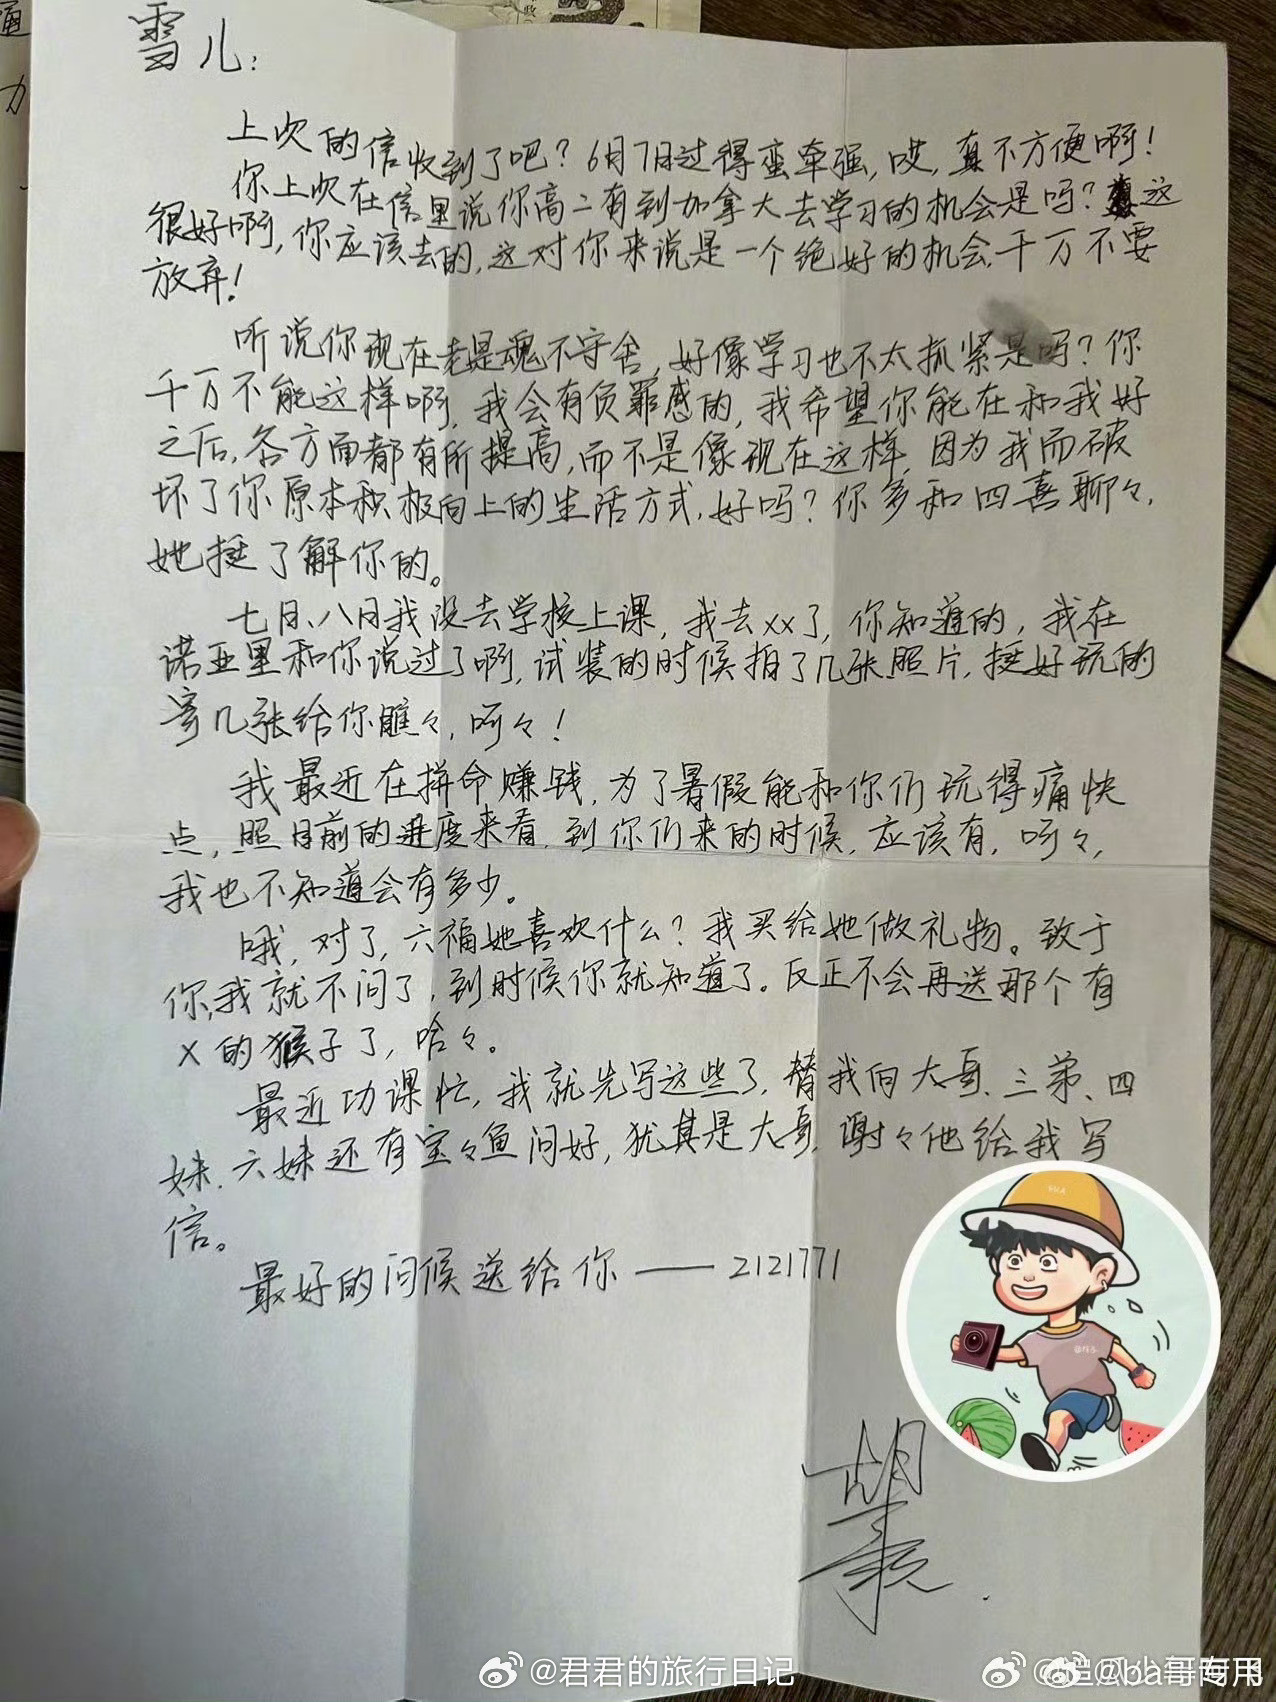 雪儿:
上次的信收到了吧？6月7日过得蛮牵强,哎,真不方便啊！
你上次在信里说你高二有到加拿大去学习的机会是吗？这
很好啊,你应该去的,这对你来说是一个绝好的机会,千万不要
放弃！
听说你现在老是魂不守舍,好像学习也不太抓紧是吗？你
千万不能这样啊,我会有负罪感的,我希望你能在和我好
之后,各方面都有所提高,而不是像现在这样,因为我而破
坏了你原本积极向上的生活方式,好吗？你多和四喜聊々,
她挺了解你的。
七月、八月我没去学校上课,我去xx了,你知道的,我在
诺亚里和你说过了啊,试装的时候拍了几张照片,挺好玩的
寄几张给你瞧々,呵々！
我最近在拼命赚钱,为了暑假能和你们玩得痛快
点,照目前的进度来看,到你们来的时候,应该有,呵々,
我也不知道会有多少。
哦,对了,六福她喜欢什么？我买给她做礼物。致于
你,我就不问了,到时候你就知道了。反正不会再送那个有
x的猴子了,哈々。
最近功课忙,我就先写这些了,替我向大哥、三弟、四
妹、六妹还有宝々鱼问好,犹其是大哥,谢々他给我写
信。
最好的问候送给你——2121771
胡
@君君的旅行日记
@ba哥专用